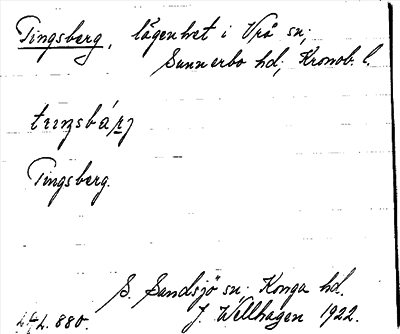 Tingsberg, lägenhet i Vrå sn;
Sunnerbo hd; Kronob. l.
Tingsberg.
S. Sandsjö sn. Konga hd.
880. J. Wellhagen 1922.